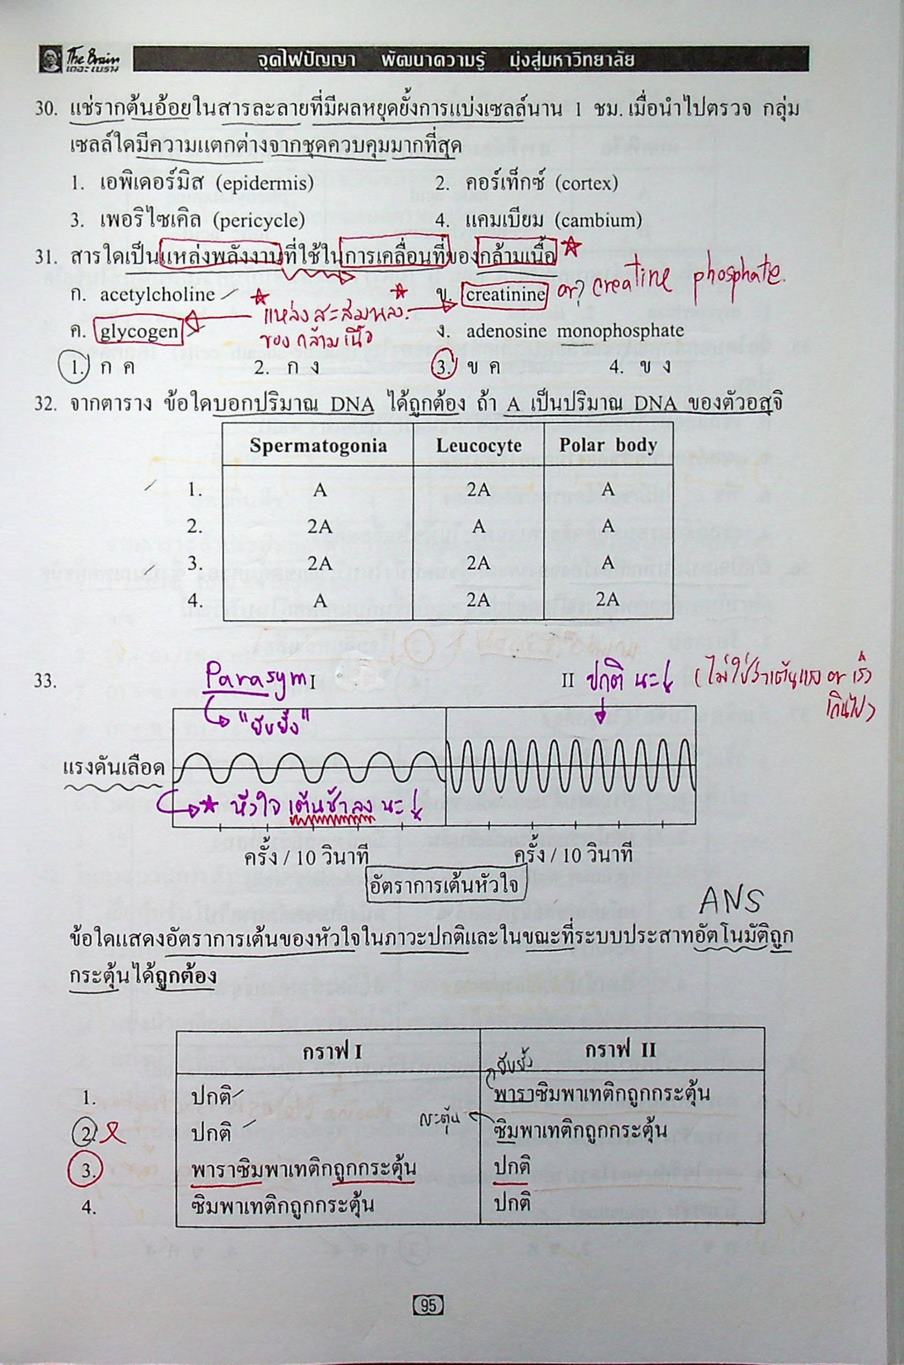 The Brain
เดอะเบรน
จุดไฟปัญญา พัฒนาความรู้ มุ่งสู่มหาวิทยาลัย
30. แช่รากต้นอ้อยในสารละลายที่มีผลหยุดยั้งการแบ่งเซลล์นาน 1 ชม. เมื่อนำไปตรวจ กลุ่ม
เซลล์ใดมีความแตกต่างจากชุดควบคุมมากที่สุด
1. เอพิเดอร์มิส (epidermis) 2. คอร์เท็กซ์ (cortex)
3. เพอริไซเคิล (pericycle) 4. แคมเบียม (cambium)
31. สารใดเป็นแหล่งพลังงานที่ใช้ในการเคลื่อนที่ของกล้ามเนื้อ
ก. acetylcholine ข. creatinine or? creatine phosphate.
แหล่งสะสมพลง.
ค. glycogen ง. adenosine monophosphate
ของกล้ามเนื้อ
1. ก ค 2. ก ง 3. ข ค 4. ข ง
32. จากตาราง ข้อใดบอกปริมาณ DNA ได้ถูกต้อง ถ้า A เป็นปริมาณ DNA ของตัวอสุจิ
Spermatogonia Leucocyte Polar body
1. A 2A A
2. 2A A A
3. 2A 2A A
4. A 2A 2A
33. Parasym I II ปกติ นะ (ไม่ใช่ว่าเต้นแรง or เร็ว
เกินไป)
"ยับยั้ง"
แรงดันเลือด
หัวใจ เต้นช้าลง นะ
ครั้ง / 10 วินาที ครั้ง / 10 วินาที
อัตราการเต้นหัวใจ
ANS
ข้อใดแสดงอัตราการเต้นของหัวใจในภาวะปกติและในขณะที่ระบบประสาทอัตโนมัติถูก
กระตุ้นได้ถูกต้อง
กราฟ I กราฟ II
ยับยั้ง
1. ปกติ พาราซิมพาเทติกถูกกระตุ้น
2. ปกติ กระตุ้น ซิมพาเทติกถูกกระตุ้น
3. พาราซิมพาเทติกถูกกระตุ้น ปกติ
4. ซิมพาเทติกถูกกระตุ้น ปกติ
95